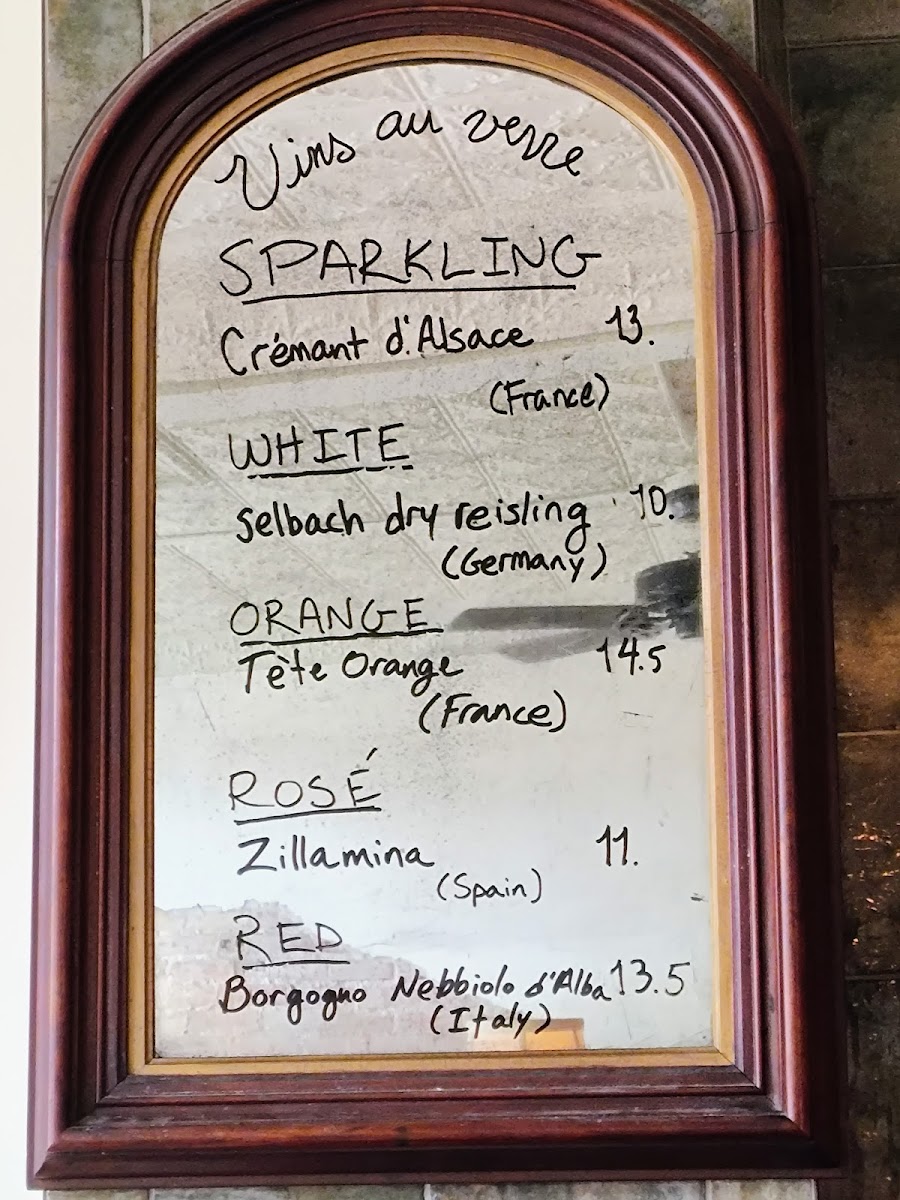 Vins au verre
SPARKLING
Crémant d'Alsace 13.
(France)
WHITE
Selbach dry reisling 10.
(Germany)
ORANGE
Tète Orange 14.5
(France)
ROSÉ
Zillamina 11.
(Spain)
RED
Borgogno Nebbiolo d'Alba 13.5
(Italy)